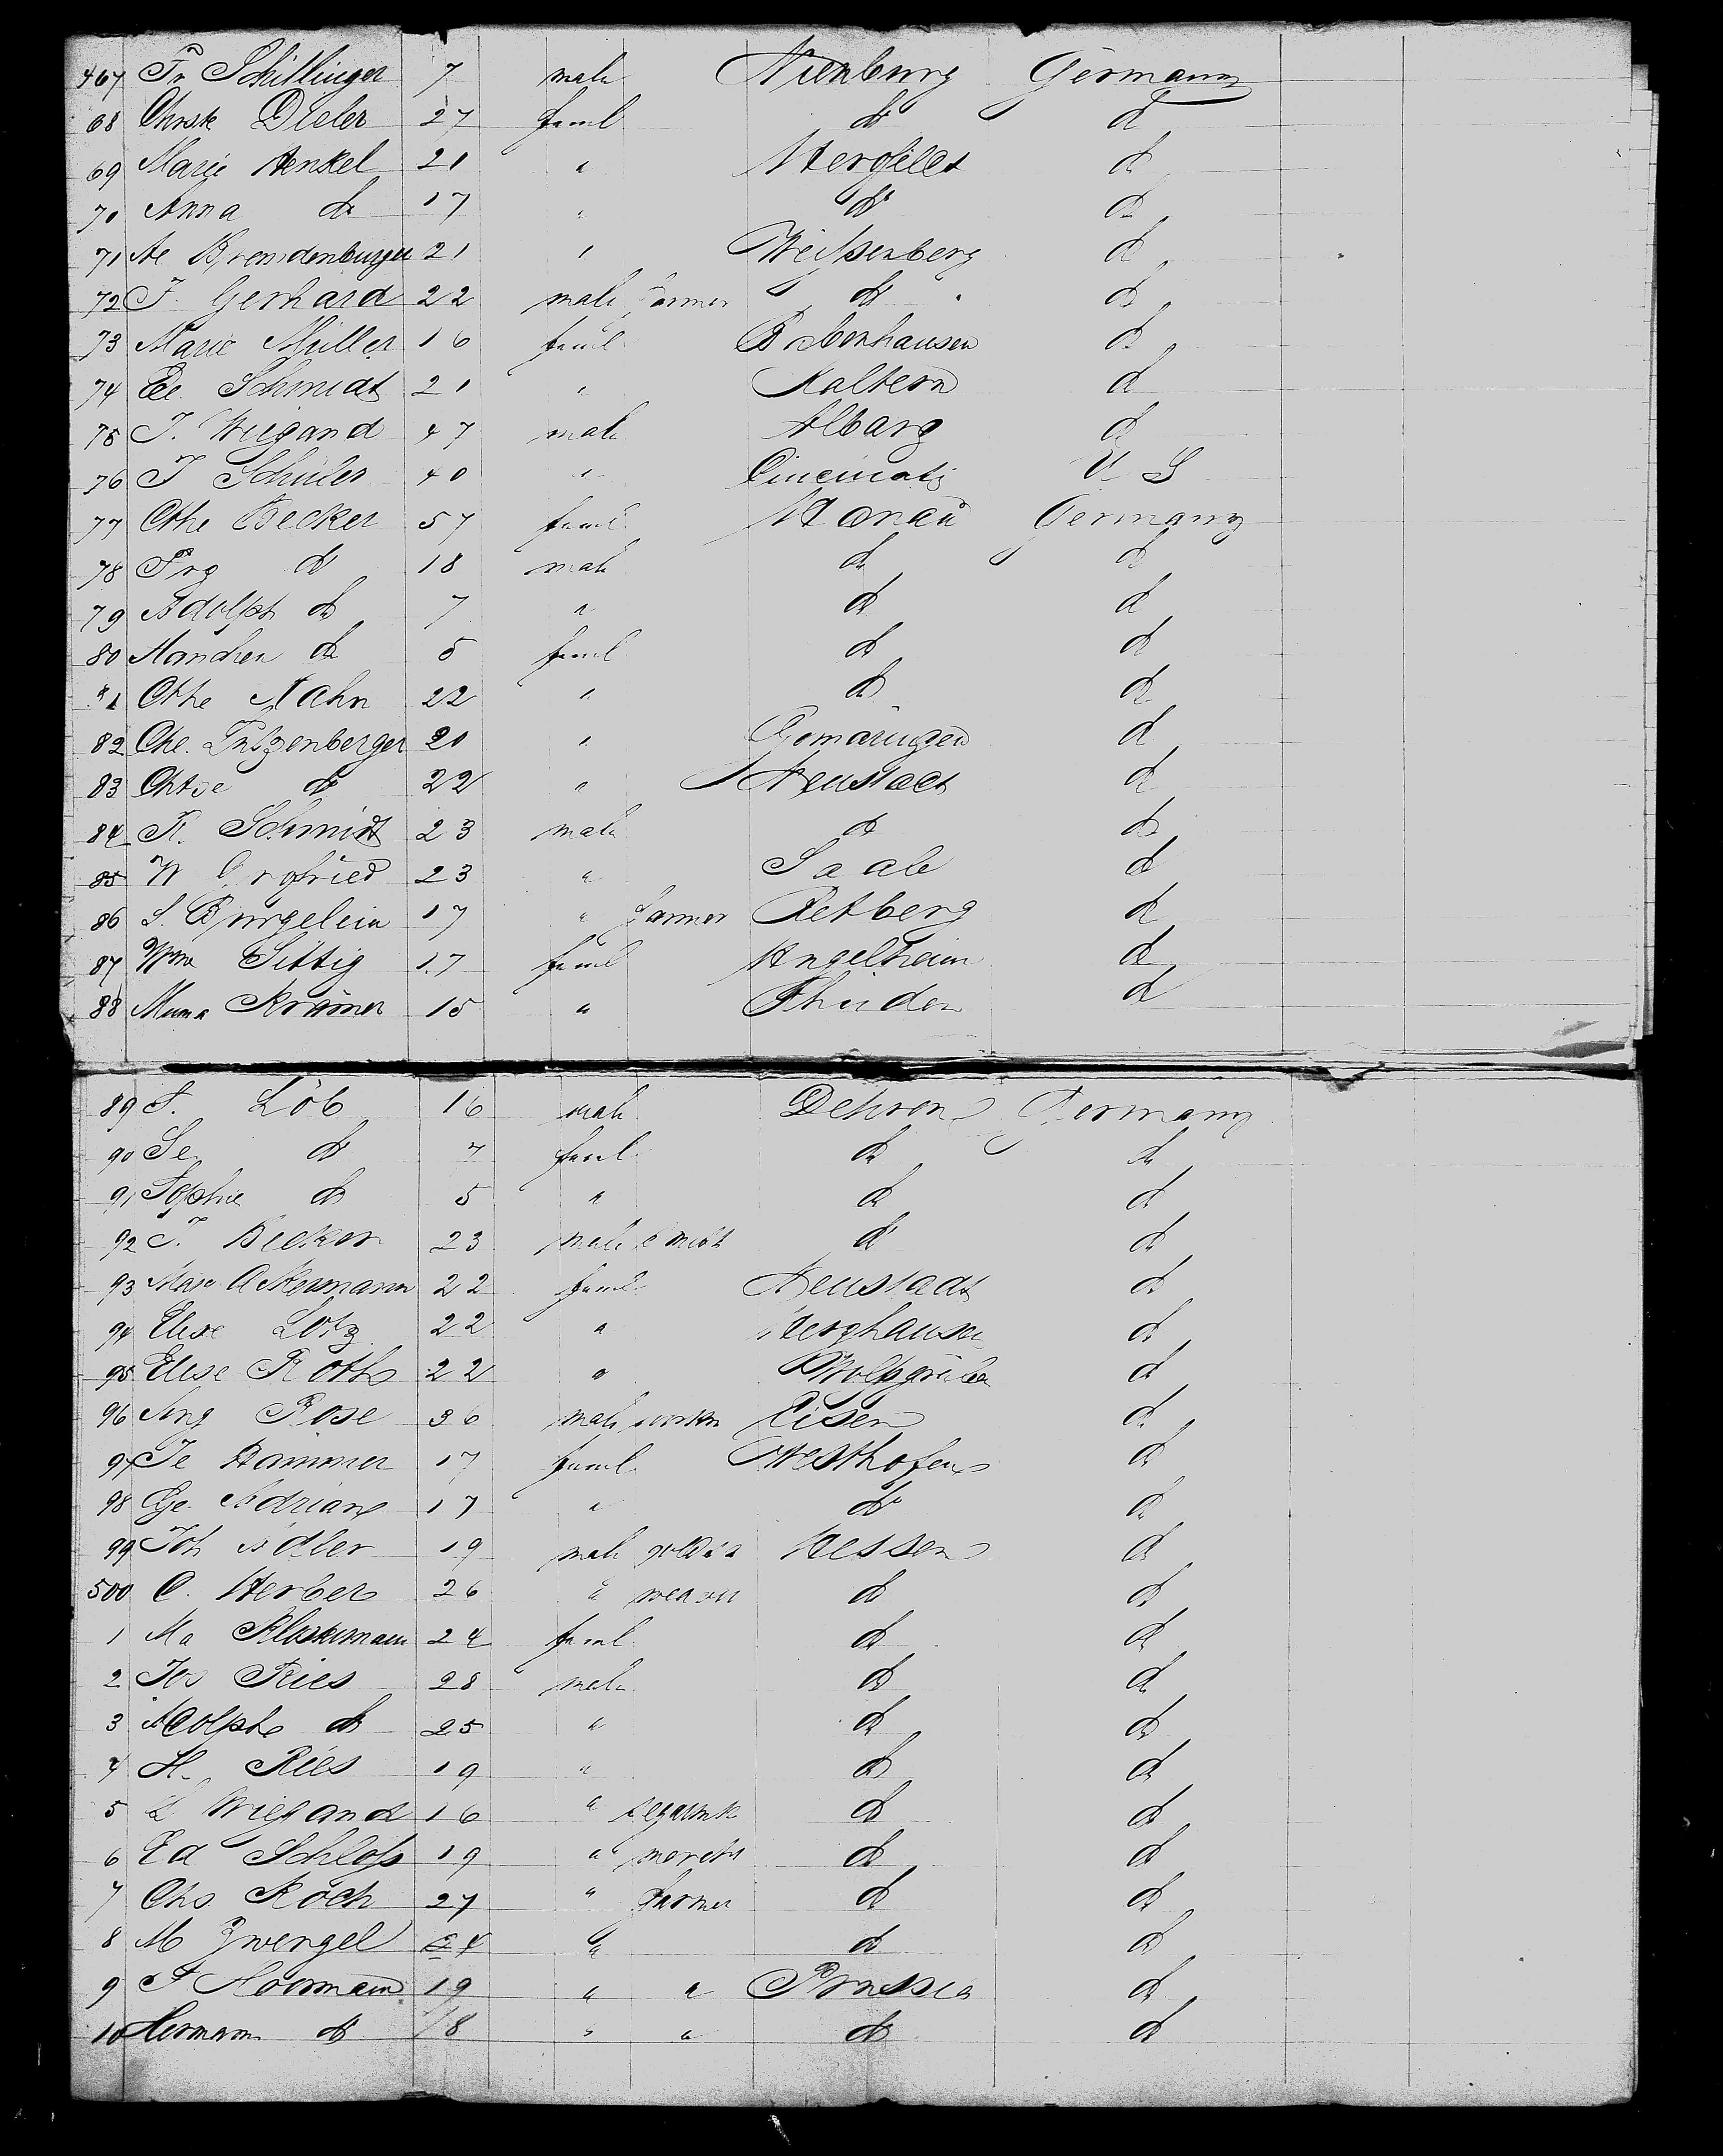 467 Fr Schillinger 7 male Nienburg Germany
68 Christe Dieler 27 feml do do
69 Marie Henkel 21 " Hersfeld do
70 Anna do 17 " do do
71 Ae Brendenburger 21 " Weißenberg do
72 J. Gerhard 22 male farmer do do
73 Marie Müller 16 feml Bobenhausen do
74 Ee. Schmidt 21 " Kaltern do
75 J. Wiegand 47 male Albarg do
76 J Schüler 40 " Cincinati U S
77 Cthe Becker 57 feml Hanau Germany
78 Frg do 18 male do do
79 Adolph do 7 " do do
80 Hanchen do 5 feml do do
81 Cthe Hahn 22 " do do
82 Che. Lutzenberger 20 " Gomaringen do
83 do 22 " Neustadt do
84 R. Schmidt 23 male do do
85 W 23 " Saale do
86 S. Burgelein 17 " farmer Retberg do
87 Wme Sittig 17 feml Angelheim do
88 Krämer 15 " do
89 S. Löb 16 male Dehron Germany
90 Se do 7 feml do do
91 Sophie do 5 " do do
92 J. Becker 23 male smith do do
93 Marie Akermann 22 feml Neustadt do
94 Elise Lotz 22 " Berghausen do
95 Elise Roth 22 " do
96 Aug Rose 36 male workm Eisen do
97 Je Hammer 17 feml Westhofen do
98 Ge. Adrian 17 " do do
99 Joh Adler 19 male Hessen do
500 C. Herber 26 " weaver do do
1 Ma Klinkermann 24 feml do do
2 Jos Ries 28 male do do
3 Adolphe do 25 " do do
4 H. Ries 19 " do do
5 L Wiegand 16 " do do
6 Ed Schloß 19 " mercht do do
7 Chs. Koch 27 " farmer do do
8 M Zwengel 24 " do do
9 F Noormann 19 " " Prussia do
10 Hermann do 18 " " do do